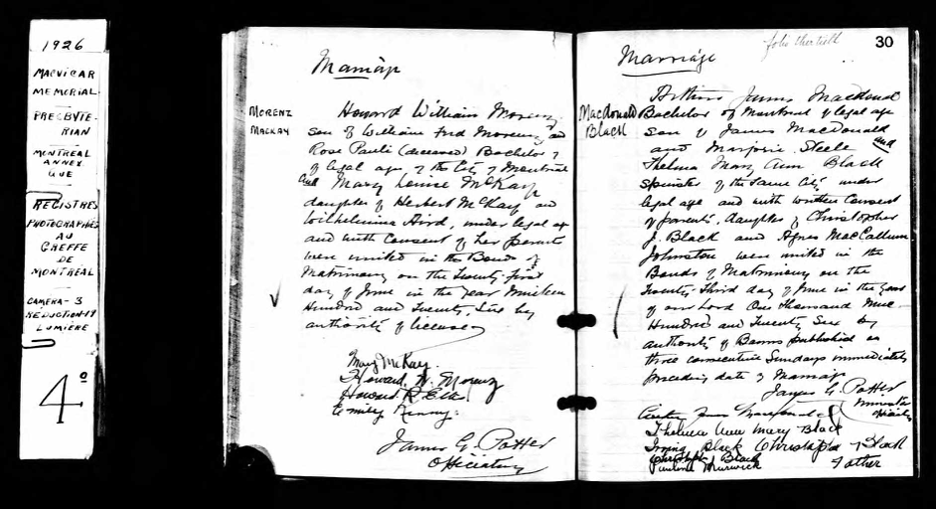 1926
MACVICAR
MEMORIAL
PRESBYTE-
RIAN
MONTREAL
ANNEX
QUE
REGISTRES
PHOTOGRAPHIÉS
AU
GREFFE
DE
MONTRÉAL
CAMERA-3
REDUCTION-19
LUMIERE
4°
Marriage
MORENZ
MACKAY
Howard William Morenz
son of William Fred Morenz and
Rose Pauli (deceased) Bachelor &
of legal age of the City of Montreal
and Mary Louise McKay
daughter of Herbert McKay and
Wilhelmina Aird, under legal age
and with Consent of her parents
were united in the Bonds of
Matrimony on the Twenty-first
day of June in the year Nineteen
Hundred and Twenty Six by
authority of license
Mary McKay
Howard W. Morenz
Howard R.
Emily
James G. Potter
Officiating
folio thirtieth
30
Marriage
MacDonald
Black
Arthur James Macdonald
Bachelor of Montreal of legal age
son of James MacDonald
and Marjorie Steele and
Thelma Mary Ann Black
Spinster of the same City under
legal age and with written Consent
of parents, daughter of Christopher
J. Black and Agnes MacCallum
Johnston were united in the
Bonds of Matrimony on the
Twenty-Third day of June in the year
of our Lord One Thousand Nine
Hundred and Twenty Six by
authority of Banns published on
three consecutive Sundays immediately
preceding date of Marriage
James G. Potter
Minister
Officiating
Arthur James Macdonald
Thelma Ann Mary Black
Irving Black Christopher J Black
Black Father